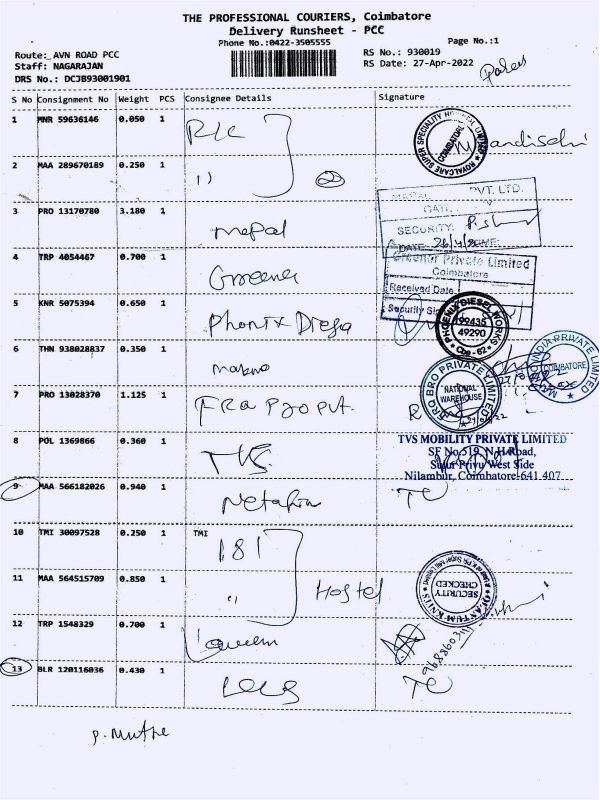 THE PROFESSIONAL COURIERS, Coimbatore
Delivery Runsheet - PCC
Phone No.:0422-3505555
Page No.:1
Route:_AVN ROAD PCC
RS No.: 930019
Staff: NAGARAJAN
RS Date: 27-Apr-2022
DRS No.: DCJB93001901
S No Consignment No Weight PCS Consignee Details Signature
1 MNR 59636146 0.050 1
2 MAA 289670189 0.250 1 11 2
ROYALCARE SUPER SPECIALITY HOSPITAL LIMITED COIMBATORE
3 PRO 13170780 3.180 1 mepal
PVT. LTD.
SECURITY:
DATE: 26/4/
4 TRP 4054467 0.700 1 Greener
Greenor Private Limited
Coimbatore
Received Date
5 KNR 5075394 0.650 1 Phonix Diega
PHOENIX DIESEL WORKS
99435
49290
Cbe - 62
6 THN 938028837 0.350 1
INDIA PRIVATE LIMITED
COIMBATORE
7 PRO 13028370 1.125 1
BRO PRIVATE LIMITED
NATIONAL
WAREHOUSE
8 POL 1369866 0.360 1 TVS
TVS MOBILITY PRIVATE LIMITED
SF No.519, N.H.Road,
West Side
Nilambur, Coimbatore-641 407
9 MAA 566182026 0.940 1 Netafim TC
10 TMI 30097528 0.250 1 TMI 181
11 MAA 564515709 0.850 1 " Hostel
QUANTUM KNITS
SECURITY
CHECKED
12 TRP 1548329 0.700 1
13 BLR 120116036 0.430 1 TC
P. Muthe